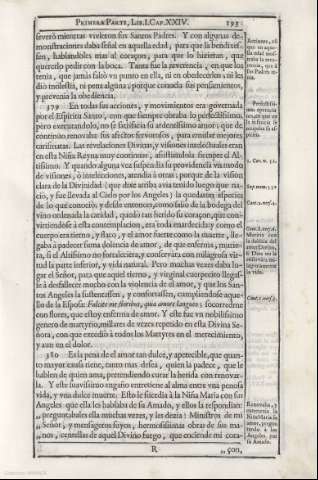 PRIMERA PARTE, LIB. I. CAP. XXIV. 193
severò mientras vivieron sus Santos Padres. Y con algunas de-
monstraciones daba señal en aquella edad, para que la bendixes-
sen, hablandoles mas al coraçon, para que lo hizieran, que
queriendo pedir con la boca. Tanta fue la reverencia, en que los
tenia, que jamàs faltò vn punto en ella, ni en obedecerlos: ni les
diò molestia, ni pena alguna; porque conocia sus pensamientos,
y prevenia la obediencia.
379 En todas sus acciones, y movimientos era governada
por el Espiritu Santo, con que siempre obraba lo perfectissimo,
pero executandolo, no se satisfacia su ardentissimo amor: que de
continuo renovaba sus afectos fervorosos, para emular mejores
carismatas. Las revelaciones Divinas, y visiones intelectuales eran
en esta Niña Reyna muy continuas; assistiendola siempre el Al-
tissimo. Y quando alguna vez suspendia su providencia vn modo
de visiones, ò intelecciones, atendia à otras; porque de la vision
clara de la Divinidad (que dixe arriba avia tenido luego que na-
ciò, y fue llevada al Cielo por los Angeles) la quedaron especies
de lo que conociò; y desde entonces, como saliò de la bodega del
vino ordenada la caridad, quedò tan herido su coraçon, que con-
virtiendose à esta contemplacion, era toda enardecida; y como el
cuerpo era tierno, y flaco, y el amor fuerte como la muerte, lle-
gaba à padecer suma dolencia de amor, de que enferma, murie-
ra, si el Altissimo no fortaleciera, y conservàra con milagrosa vir-
tud la parte inferior, y vida natural. Pero muchas vezes daba lu-
gar el Señor, para que aquel tierno, y virginal cuerpecito llegas-
se à desfallecer mucho con la violencia de el amor, y que los San-
tos Angeles la sustentassen, y confortassen, cumpliendose aque-
llo de la Esposa: Fulcite me floribus, quia amore langueo: socorredme
con flores, que estoy enferma de amor. Y este fue vn nobilissimo
genero de martyrio, millares de vezes repetido en esta Divina Se-
ñora, con que excediò à todos los Martyres en el merecimiento,
y aun en el dolor.
380 Es la pena de el amor tan dulce, y apetecible, que quan-
to mayor causa tiene, tanto mas desea, quien la padece, que le
hablen de quien ama, pretendiendo curar la herida con renovar-
la. Y este suavissimo engaño entretiene al alma entre vna penosa
vida, y vna dulce muerte. Esto le sucedia à la Niña Maria con sus
Angeles que ella les hablaba de su Amado, y ellos la respondian:
preguntabales ella muchas vezes, y les dezia: Ministros de mi
„ Señor, y mensageros suyos, hermosissimas obras de sus ma-
„ nos, centellas de aquel Divino fuego, que enciende mi cora-
R „ çon,
1. Cor. 12. 31.
Sup. num. 330.
Cant. 2. vers. 4.
Cant. 2. vers. 5.